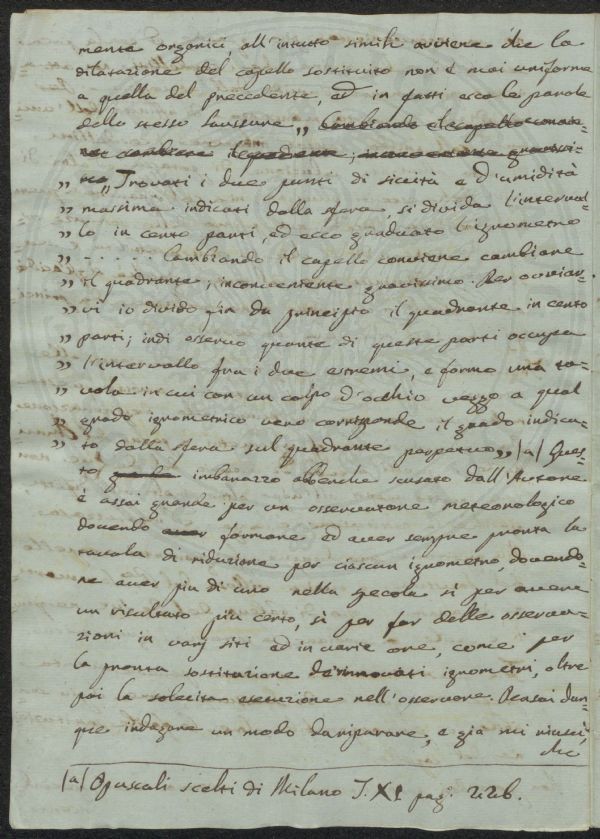 mente organici, all'intutto simili avviene che la
dilatazione del capello sostituito non è mai uniforme
a quella del precedente, ed in fatti ecco le parole
dello stesso Saussure „ Cambiando il capello convie-
ne cambiare il quadrante; inconveniente gravissi-
mo „ Trovati i due punti di siccità e d'umidità
„ massima indicati dalla sfera, si divida l'interval-
„ lo in cento parti, ed ecco graduato l'igrometro
„ - . . . . . Cambiando il capello conviene cambiare
„ il quadrante; inconveniente gravissimo. Per ovviar-
„ vi io divido fin da principio il quadrante in cento
„ parti; indi osservo quante di queste parti occupa
„ l'intervallo fra i due estremi, e formo una ta-
„ vola in cui con un colpo d'occhio veggo a qual
„ grado igrometrico vero corrisponde il grado indica-
„ to dalla sfera sul quadrante perpetuo „ (a) Ques-
to imbarazzo abbenche scusato dall'Autore
è assai grande per un osservatore meteorologico
dovendo aver formare ed aver sempre pronta la
tavola di riduzione per ciascun igrometro, dovendo-
ne aver piu di uno nella specola sì per avere
un risultato piu certo, sì per far delle osserva-
zioni in varj siti ed in varie ore, come per
la pronta sostituzione de'rinnovati igrometri, oltre
poi la sollecita esecuzione nell'osservare. Pensai dun-
que indagare un modo da riparare, e già mi riuscì,
che
(a) Opuscoli scelti di Milano T. XI pag. 226.